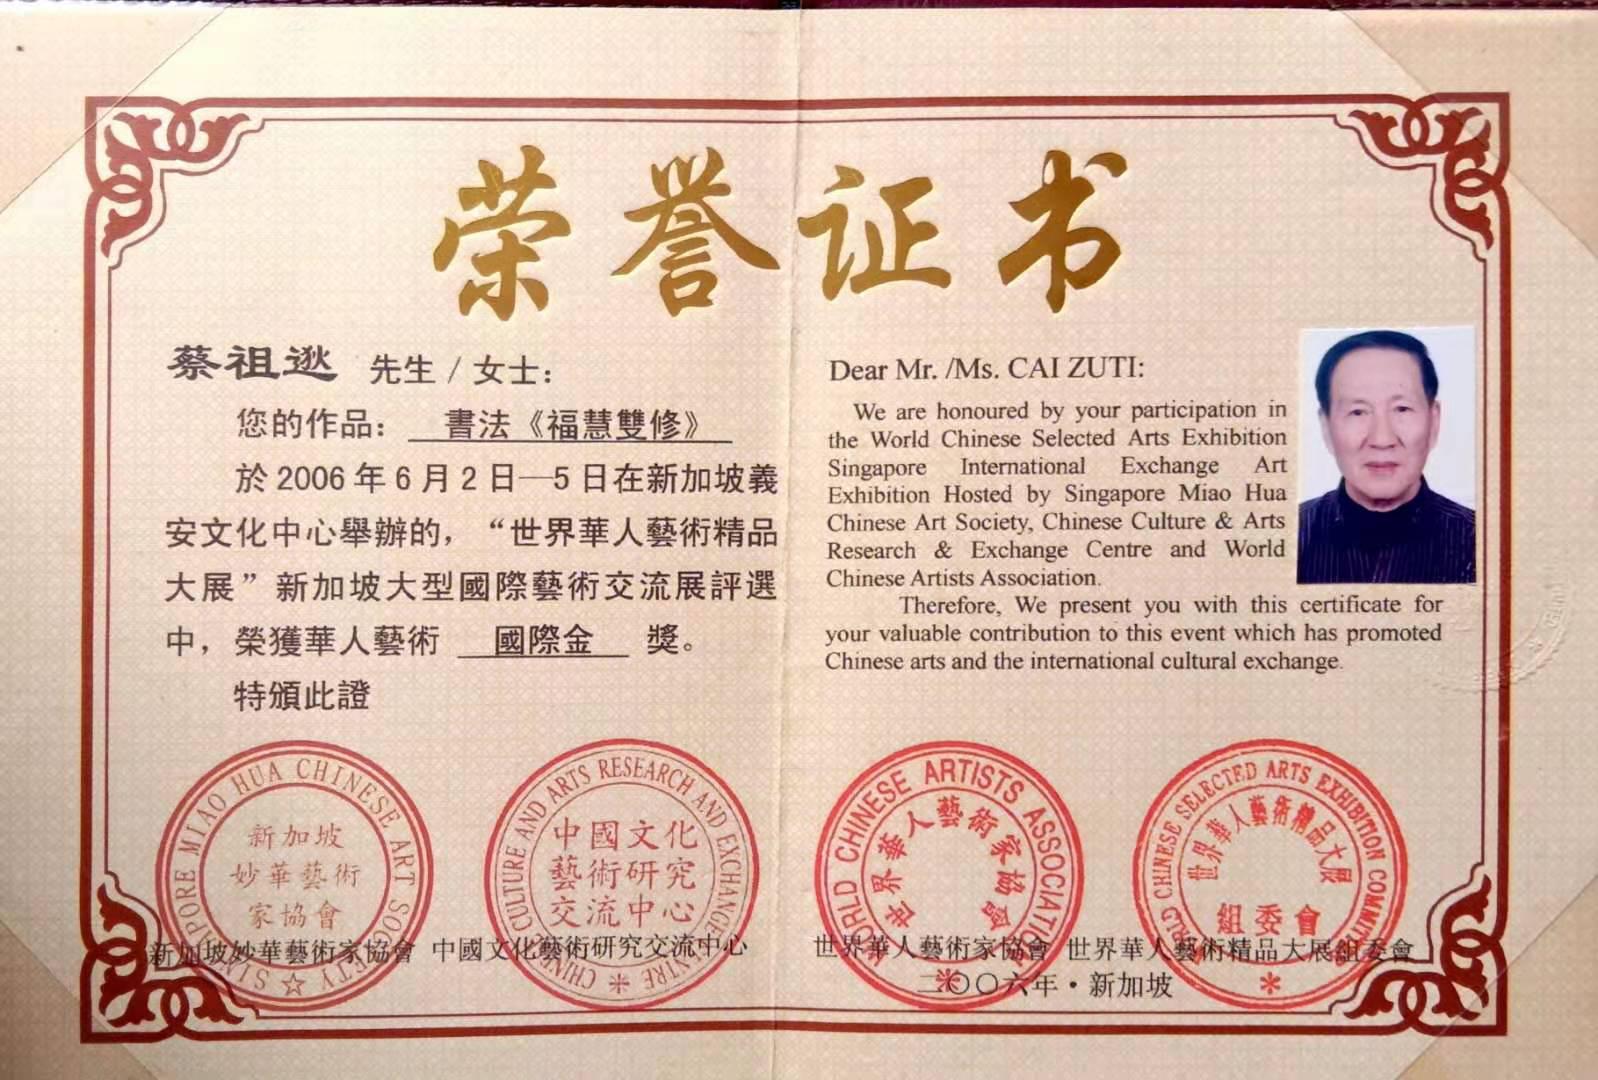 荣誉证书
蔡祖逖 先生/女士:
您的作品: 書法《福慧雙修》
於2006年6月2日—5日在新加坡義
安文化中心舉辦的,“世界華人藝術精品
大展”新加坡大型國際藝術交流展評選
中,榮獲華人藝術 國際金 獎。
特頒此證
Dear Mr. /Ms. CAI ZUTI:
We are honoured by your participation in
the World Chinese Selected Arts Exhibition
Singapore International Exchange Art
Exhibition Hosted by Singapore Miao Hua
Chinese Art Society, Chinese Culture & Arts
Research & Exchange Centre and World
Chinese Artists Association.
Therefore, We present you with this certificate for
your valuable contribution to this event which has promoted
Chinese arts and the international cultural exchange.
SINGAPORE MIAO HUA CHINESE ART SOCIETY
新加坡
妙華藝術
家協會
CHINESE CULTURE AND ARTS RESEARCH AND EXCHANGE CENTRE
中國文化
藝術研究
交流中心
WORLD CHINESE ARTISTS ASSOCIATION
世界華人藝術家協會
WORLD CHINESE SELECTED ARTS EXHIBITION COMMITTEE
世界華人藝術精品大展
組委會
新加坡妙華藝術家協會 中國文化藝術研究交流中心 世界華人藝術家協會 世界華人藝術精品大展組委會
二〇〇六年·新加坡